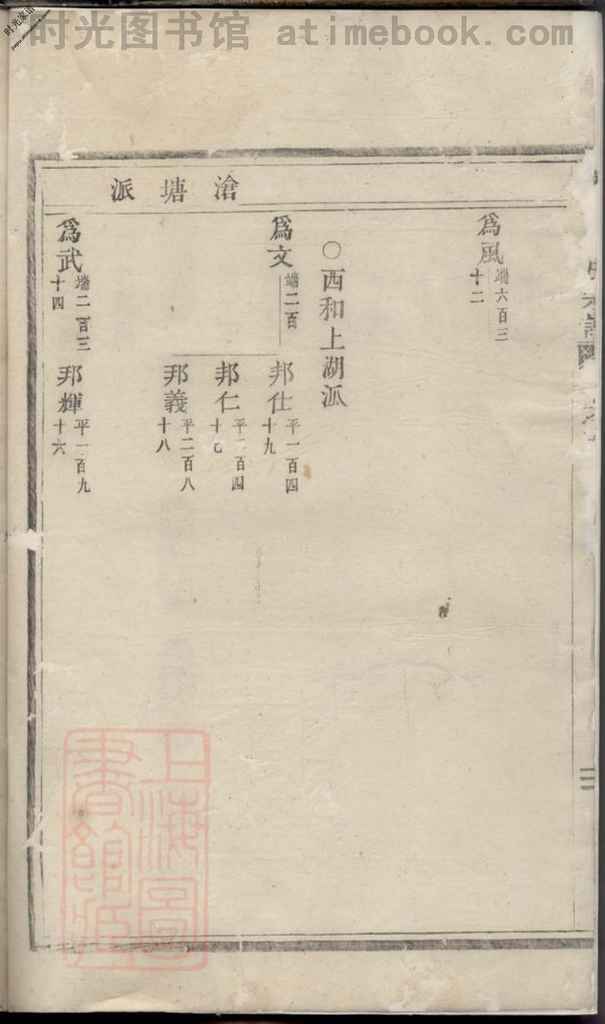 时光图书馆 atimebook.com
滄塘派
爲風 端六百三十二
○西和上湖派
爲文 端二百
邦仕 平一百四十九
邦仁 平百四十
邦義 平二百八十八
爲武 端二百三十四
邦輝 平一百九十六
上海圖書館藏